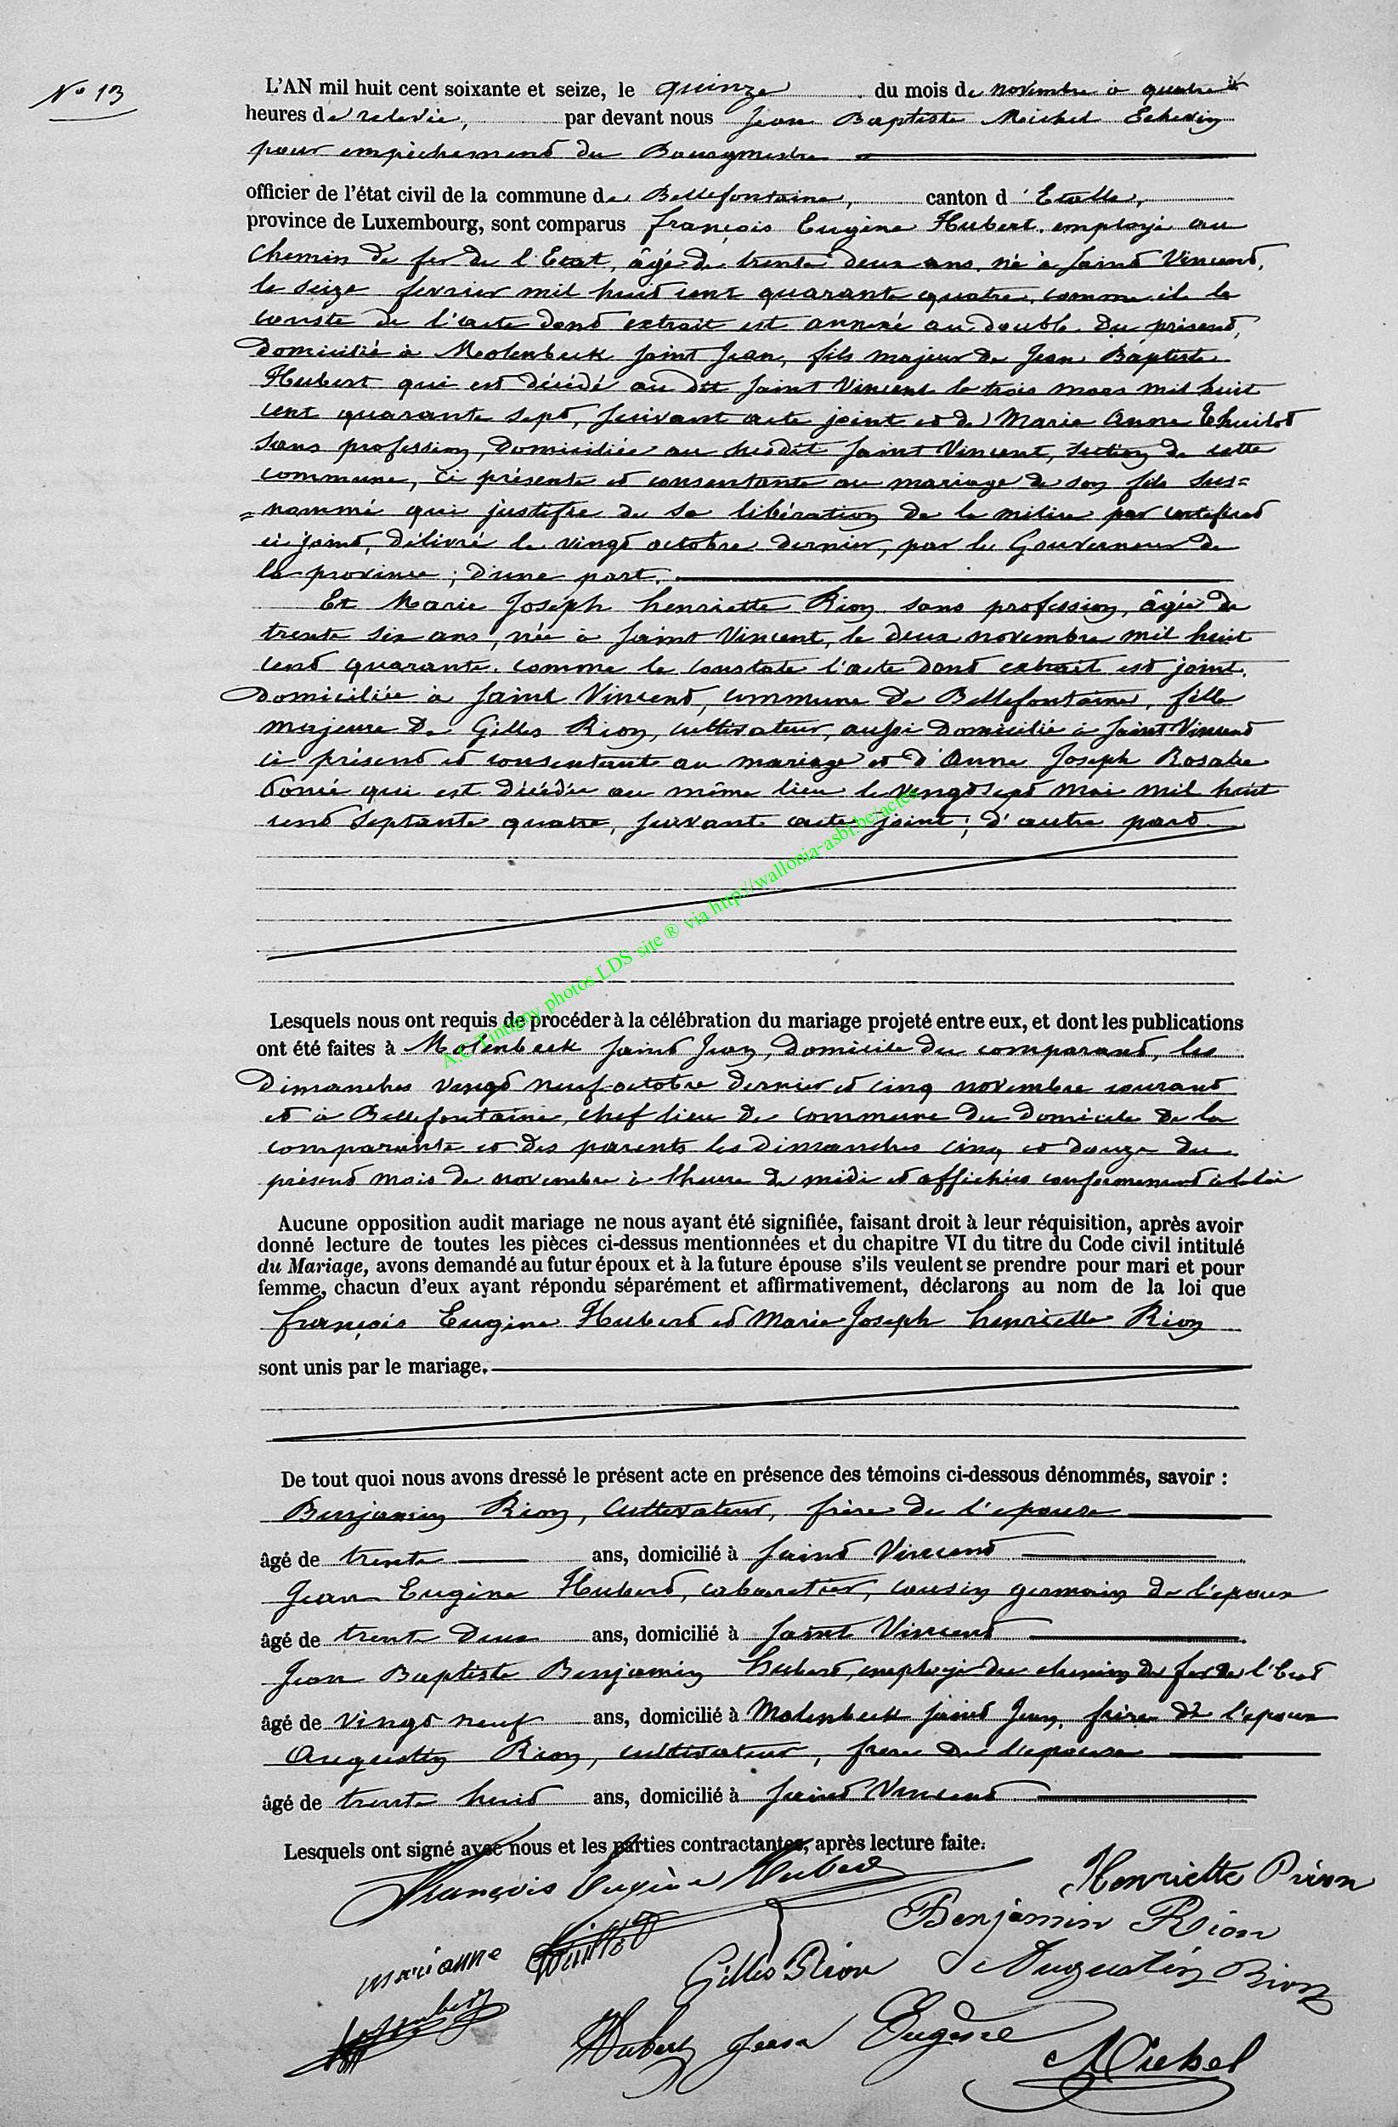 N° 13
L'AN mil huit cent soixante et seize, le quinze du mois de novembre à quatre
heures de relevée, par devant nous Jean Baptiste Michel Echevin
pour empêchement du Bourgmestre
officier de l'état civil de la commune de Bellefontaine, canton d'Etalle,
province de Luxembourg, sont comparus françois Eugène Hubert, employé au
chemin de fer de l'Etat, âgé de trente deux ans, né à Saint Vincent,
le seize fevrier mil huit cent quarante quatre, comme il le
conste de l'acte dont extrait est annexé au double du présent,
domicilié à Molenbeek Saint Jean, fils majeur de Jean Baptiste
Hubert qui est décédé au dit Saint Vincent le trois mars mil huit
cent quarante sept, suivant acte joint et de Marie Anne Thuilot
sans profession, domiciliée au susdit Saint Vincent, section de cette
commune, ci présente et consentante au mariage de son fils sus=
=nommé qui justifie de sa libération de la milice par certificat
ci joint, délivré le vingt octobre dernier, par le Gouverneur de
la province ; d'une part.
Et Marie Joseph henriette Rion sans profession, âgée de
trente six ans, née à Saint Vincent, le deux novembre mil huit
cent quarante. comme le constate l'acte dont extrait est joint.
domiciliée à Saint Vincent, commune de Bellefontaine, fille
majeure de Gilles Rion, cultivateur, aussi domicilié à Saint Vincent
ci présent et consentant au mariage et d'Anne Joseph Rosalie
qui est décédée au même lieu le vingt sept mai mil huit
cent septante quatre, suivant acte joint ; d'autre part.
A.C. Tintigny photos LDS site ® via http://wallonia-asbl.be/actes
Lesquels nous ont requis de procéder à la célébration du mariage projeté entre eux, et dont les publications
ont été faites à Molenbeek Saint Jean, domicile du comparant, les
dimanches vingt neuf octobre dernier et cinq novembre courant
et à Bellefontaine, chef lieu de commune du domicile de la
comparante et des parents les dimanches cinq et douze du
présent mois de novembre à l'heure de midi et affichées conformément à la loi
Aucune opposition audit mariage ne nous ayant été signifiée, faisant droit à leur réquisition, après avoir
donné lecture de toutes les pièces ci-dessus mentionnées et du chapitre VI du titre du Code civil intitulé
du Mariage, avons demandé au futur époux et à la future épouse s'ils veulent se prendre pour mari et pour
femme, chacun d'eux ayant répondu séparément et affirmativement, déclarons au nom de la loi que
françois Eugène Hubert et Marie Joseph henriette Rion
sont unis par le mariage.
De tout quoi nous avons dressé le présent acte en présence des témoins ci-dessous dénommés, savoir :
Benjamin Rion, cultivateur, frère de l'epouse
âgé de trente ans, domicilié à Saint Vincent
Jean Eugène Hubert, cabaretier, cousin germain de l'epoux
âgé de trente deux ans, domicilié à Saint Vincent
Jean Baptiste Benjamin hubert, employé du chemin de fer de l'Etat
âgé de vingt neuf ans, domicilié à Molenbeek saint Jean, frère de l'epoux
Augustin Rion, cultivateur, frere de l'epouse
âgé de trente huit ans, domicilié à Saint Vincent
Lesquels ont signé avec nous et les parties contractantes, après lecture faite.
François Eugène Hubert
Henriette Rion
Benjamin Rion
marianne
Gillis Rion
Augustin Rion
Hubert Jean Eugène
Michel